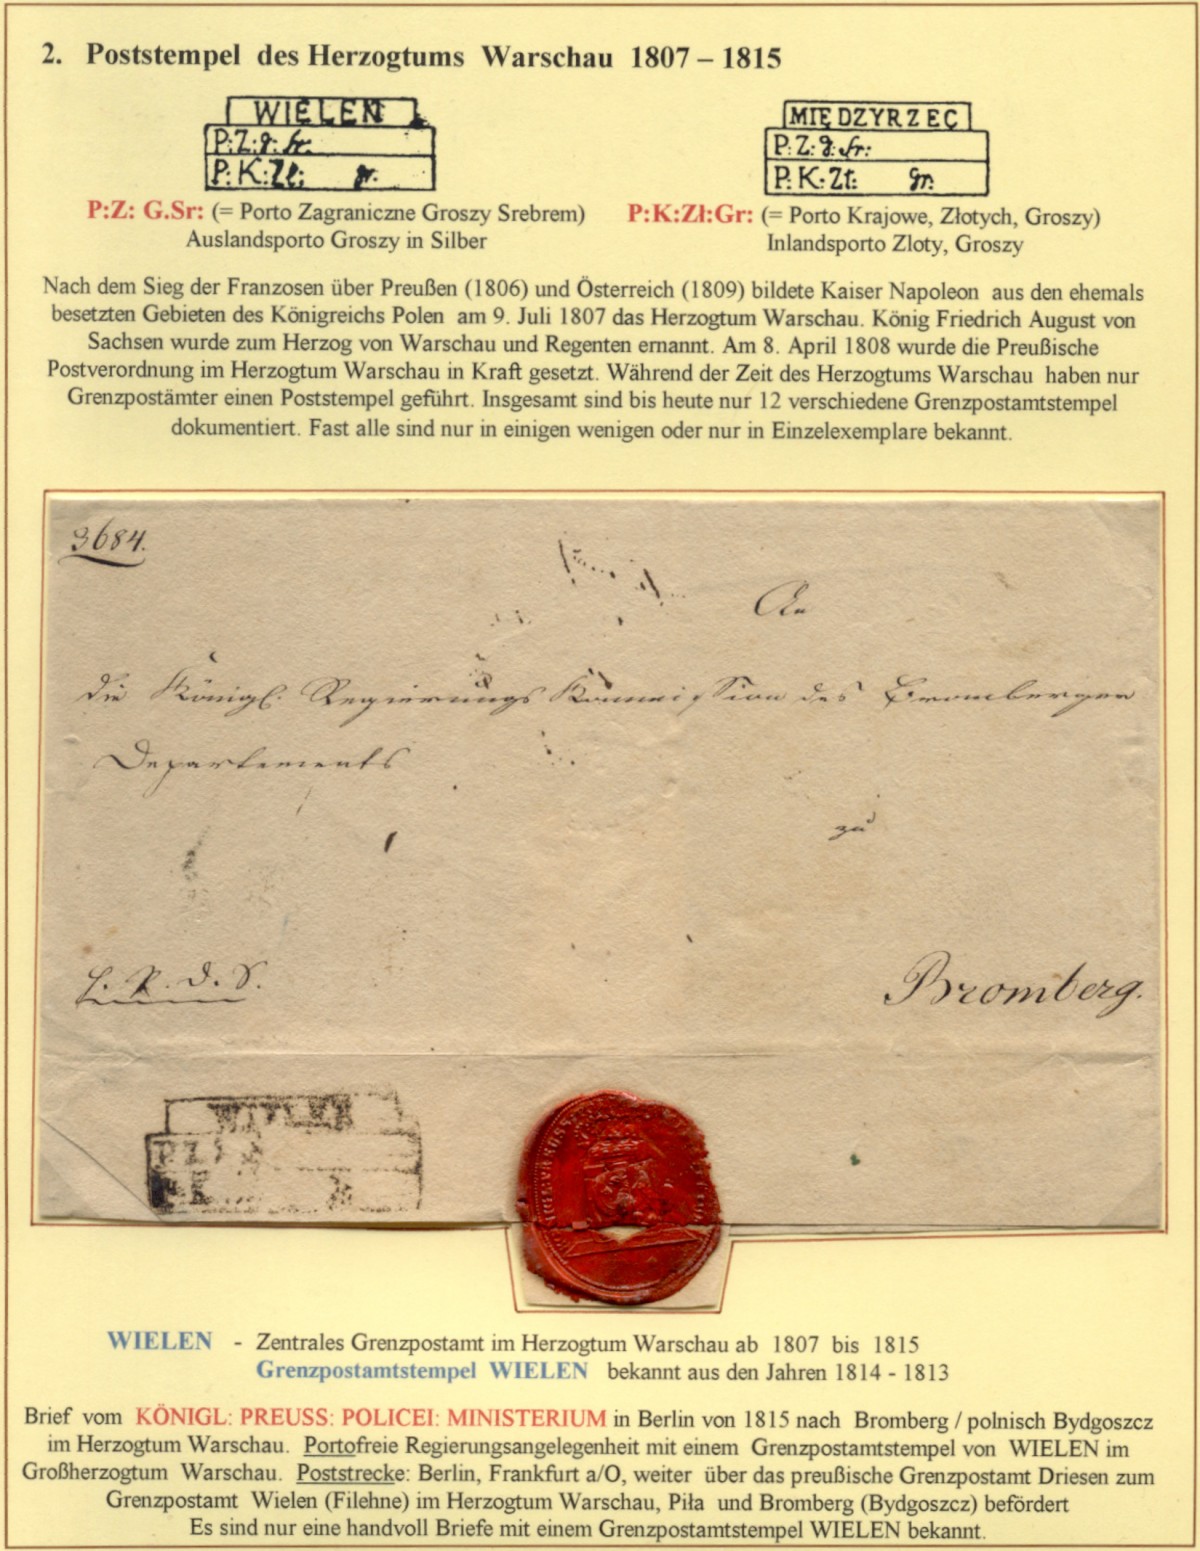 2. Poststempel des Herzogtums Warschau 1807 – 1815
WIELEN
P:Z:g:Sr:
P:K:Zl: gr.
MIĘDZYRZEC
P:Z:g:Sr:
P:K:Zł: Gr.
P:Z: G.Sr: (= Porto Zagraniczne Groszy Srebrem)
Auslandsporto Groszy in Silber
P:K:Zł:Gr: (= Porto Krajowe, Złotych, Groszy)
Inlandsporto Zloty, Groszy
Nach dem Sieg der Franzosen über Preußen (1806) und Österreich (1809) bildete Kaiser Napoleon aus den ehemals
besetzten Gebieten des Königreichs Polen am 9. Juli 1807 das Herzogtum Warschau. König Friedrich August von
Sachsen wurde zum Herzog von Warschau und Regenten ernannt. Am 8. April 1808 wurde die Preußische
Postverordnung im Herzogtum Warschau in Kraft gesetzt. Während der Zeit des Herzogtums Warschau haben nur
Grenzpostämter einen Poststempel geführt. Insgesamt sind bis heute nur 12 verschiedene Grenzpostamtstempel
dokumentiert. Fast alle sind nur in einigen wenigen oder nur in Einzelexemplare bekannt.
3684.
An
die Königl. Regierungs Kommission des Bromberger
Departements
zu
Bromberg.
WIELEN
P.Z
K
WIELEN - Zentrales Grenzpostamt im Herzogtum Warschau ab 1807 bis 1815
Grenzpostamtstempel WIELEN bekannt aus den Jahren 1814 - 1813
Brief vom KÖNIGL: PREUSS: POLICEI: MINISTERIUM in Berlin von 1815 nach Bromberg / polnisch Bydgoszcz
im Herzogtum Warschau. Portofreie Regierungsangelegenheit mit einem Grenzpostamtstempel von WIELEN im
Großherzogtum Warschau. Poststrecke: Berlin, Frankfurt a/O, weiter über das preußische Grenzpostamt Driesen zum
Grenzpostamt Wielen (Filehne) im Herzogtum Warschau, Piła und Bromberg (Bydgoszcz) befördert
Es sind nur eine handvoll Briefe mit einem Grenzpostamtstempel WIELEN bekannt.